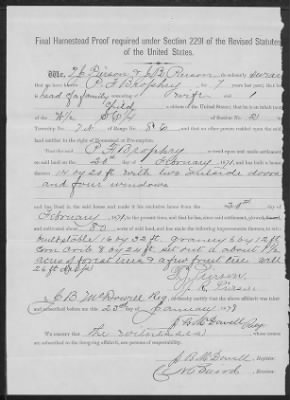 Final Homestead Proof required under Section 2291 of the Revised Statutes
of the United States.
We, Pierson & Pierson do solemnly swear
that we have known P. F. Brophey for 7 years last past; that he is
head of a family consisting of wife & 1
child a citizen of the United States; that he is an
W/2 of S E/4 of Section No. 21
Township No. 7 N of Range No. 8 E and that no other person resided upon the said
land entitled to the right of Homestead or Pre-emption.
That the said P. F. Brophey
on said land on the 20th day of February, 1871, and has built a house
14 by 20 ft with two outside doors
and four windows
and has lived in the said house and made it his exclusive home from the 20th day of
February, 1871, to the present time, and that he has, since said settlement, plowed,
and cultivated about 80 acres of said land, and has made the following improvements thereon, to wit:
built stable 16 by 32 ft. granary 8 by 12 ft
Corn crib 8 by 24 ft set out about 1 1/2
acres of forest trees & a few fruit trees well
26 ft deep
Pierson
Pierson
I, J B McDowell Reg, do hereby certify that the above affidavit was taken
and subscribed before me this 23d day of January 1878
J. B. McDowell Reg
We certify that the witnesses whose names are
subscribed to the foregoing affidavit, are persons of respectability.
J B McDowell, Register.
Receiver.